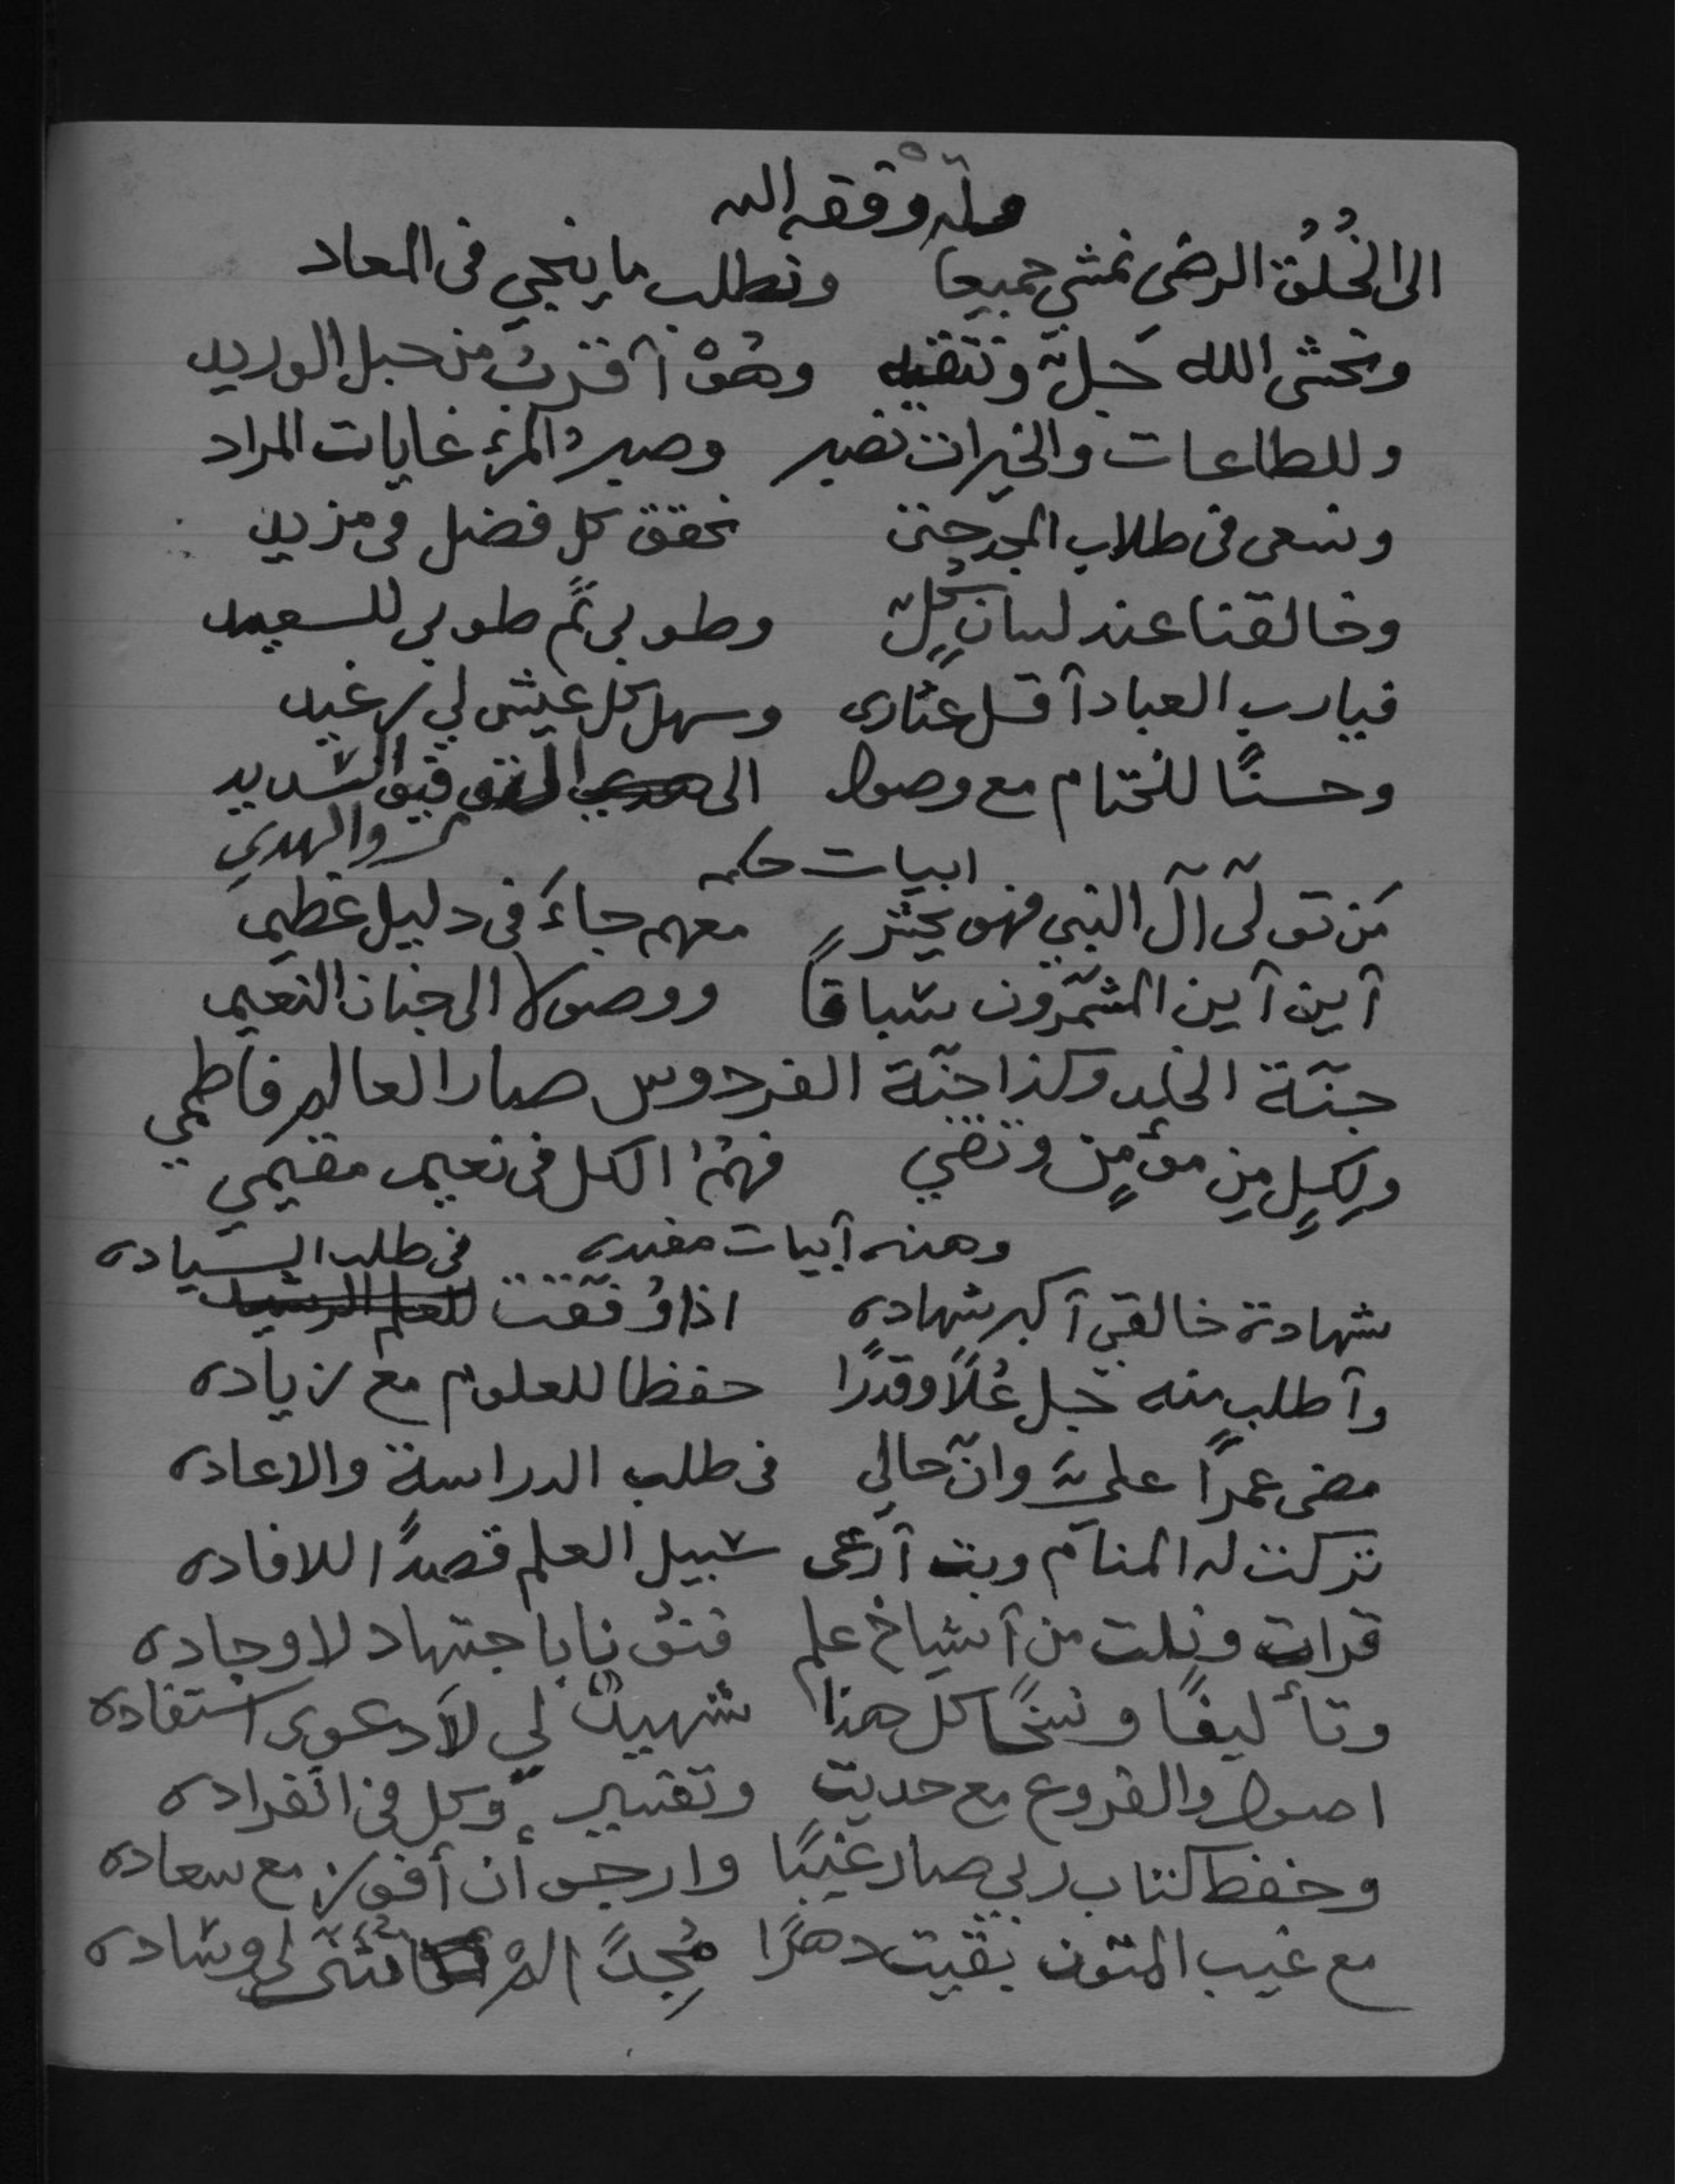 وله وفقه الله
الى الخُلُق الرضى نمشي جميعا ونطلب ما ينجي فى المعاد
ونخشى الله جَلّ ونتقيه وهُوْ أقرب من حبل الوريد
وللطاعات والخيرات نصبر وصبر المرء غايات المراد
ونسعى فى طلاب المجد حتى نحقق كل فضل فى مزيد
وخالقنا عند لسان كُلٍّ وطوبى ثمَّ طوبى للسعيد
فيارب العباد أقل عثارى وسهل كل عيش لي رغيد
وحسنًا للختام مع وصول الى التوفيق السديد
والهدي
ابيات حكمه
مَن تولّى آل النبي فهو يحشر معهم جاءَ فى دليل عظيم
أين أين المشمّرون سباقًا ووصولا الى جنان النعيم
جنّة الخلد وكذا جنّة الفردوس صار العالم فاطمي
ولِكلٍ مِن مؤمِن وتقي فهُمُ الكل فى نعيم مقيمي
وهذه أبيات مفيده
شهادة خالقي أكبر شهاده اذا وُفّقت فى طلب السياده
وأطلب منه جل عُلًا وقدرًا حفظا للعلوم مع زياده
مضى عمرًا عليَّ وانّ حالي فى طلب الدراسة والاعاده
تركت له المنام وبت أرعى سبيل العلم قصدًا للافاده
قرات ونلت من أشياخ علم فنونا باجتهاد لا وجاده
وتأليفًا ونسخًا كل هذا شهيدٌ لي لاَدعوى استفاده
اصول والفروع مع حديث وتفسير وكل فى انفراده
وحفظ كتاب ربي صار غيبًا وارجو أن أفوز مع سعاده
مع غيب المتون بقيت دهرًا مُجِدً لي وساده